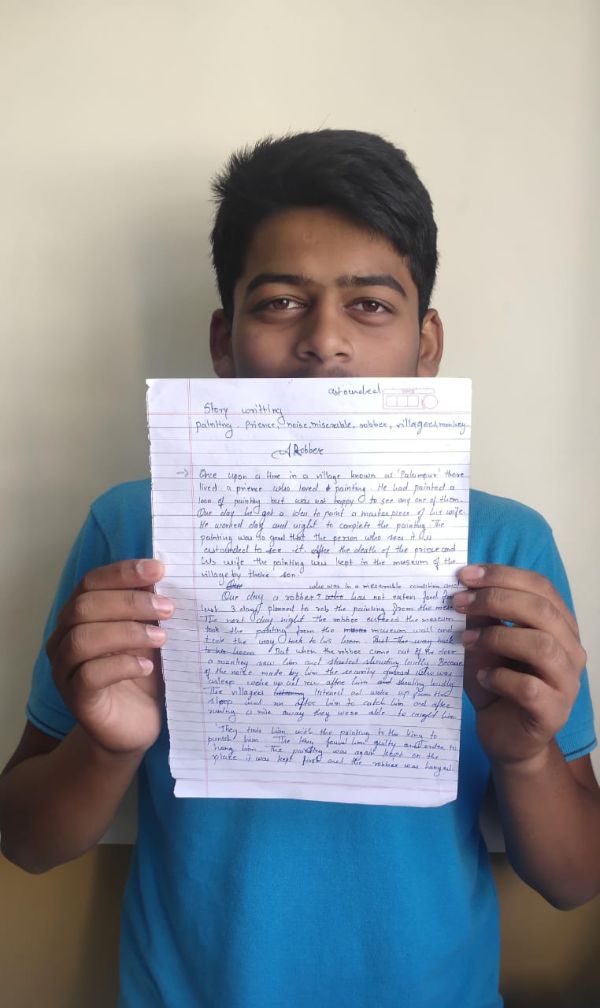 astounded
Story writting
painting, prience, noise, miserable, robber, villagers, monkey
A Robber
Once upon a time in a village known as 'Palampur' there
lived a prience who loved painting. He had painted a
lon of painting but was not happy to see any one of them.
One day he got a idea to paint a masterpiece of his wife.
He worked day and night to complete the painting. The
painting was so good that the person who sees it was
astounded to see it. After the death of the prince and
his wife the painting was kept to the museum of the
village by their son
who was in a meserable condition and
One day a robber has not eaten food for
last 3 days planned to rob the painting from the
The next day night the robber entered the museum
took the painting from the museum wall and
took the way back to his home. But
when the robber come out of the door
a monkey saw him and started shouting loudly. Because
of the noise made by him the security guard who was
asleep woke up and run after him shouting loudly
The villagers listened and woke up from their
sleep and run after him to catch him and after
runing a mile away they were able to caught him
They took him with the painting to the king to
punish him. The king found him guilty and order to
hang him. The painting was again kept on the
place it was kept first and the robber was hanged.